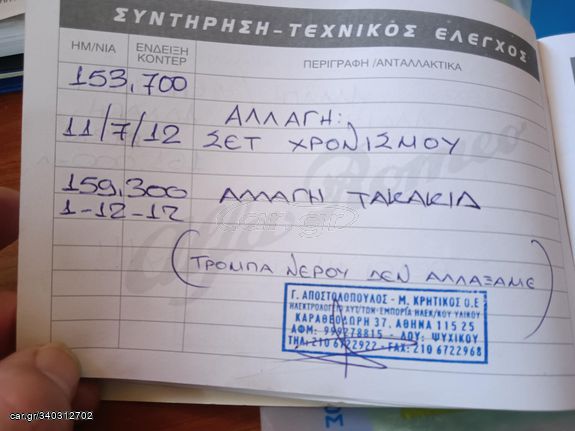 ΣΥΝΤΗΡΗΣΗ-ΤΕΧΝΙΚΟΣ ΕΛΕΓΧΟΣ
ΗΜ/ΝΙΑ
ΕΝΔΕΙΞΗ
ΚΟΝΤΕΡ
ΠΕΡΙΓΡΑΦΗ/ΑΝΤΑΛΛΑΚΤΙΚΑ
153,700
ΑΛΛΑΓΗ:
11/7/12 ΣΕΤ ΧΡΟΝΙΣΜΟΥ
159,300 ΑΛΛΑΓΗ ΤΑΚΑΚΙΑ
1-12-12
(ΤΡΟΜΠΑ ΝΕΡΟΥ ΔΕΝ ΑΛΛΑΞΑΜΕ)
Γ. ΑΠΟΣΤΟΛΟΠΟΥΛΟΣ - Μ. ΚΡΗΤΙΚΟΣ Ο.Ε
ΗΛΕΚΤΡΟΛΟΓΕΙΟ ΑΥΤ/ΤΩΝ-ΕΜΠΟΡΙΑ ΗΛΕΚ/ΚΟΥ ΥΛΙΚΟΥ
ΚΑΡΑΘΕΟΔΩΡΗ 37, ΑΘΗΝΑ 115 25
ΑΦΜ: 999278815 - ΔΟΥ: ΨΥΧΙΚΟΥ
ΤΗΛ: 210 6722922 - FAX: 210 6722968
Alfa Romeo
car.gr
car.gr/340312702